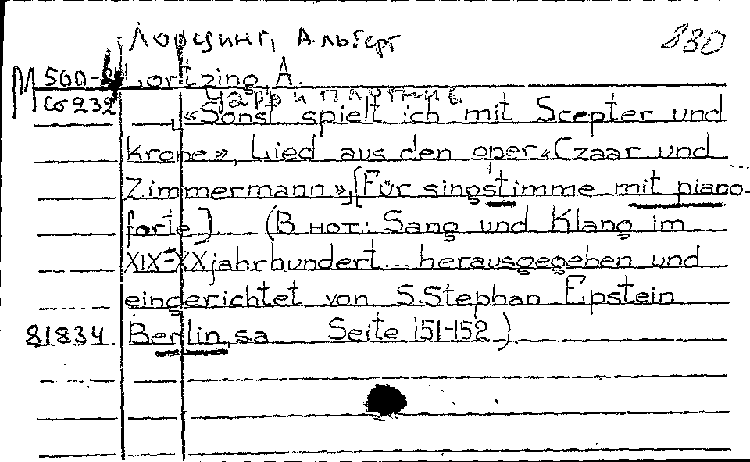 Лорцинг, Альберт 880
М 500-2 Lortzing A.
Co 232 Царь и плотник
«Sonst spielt ich mit Scepter und
krone», Lied aus den oper «Czaar und
Zimmermann», [Für singstimme mit piano-
forte] (В нот: Sang und Klang im
XIX-XX jahrhundert... herausgegeben und
eingerichtet von S. Stephan Epstein
81834. Berlin, sa Seite 151-152)